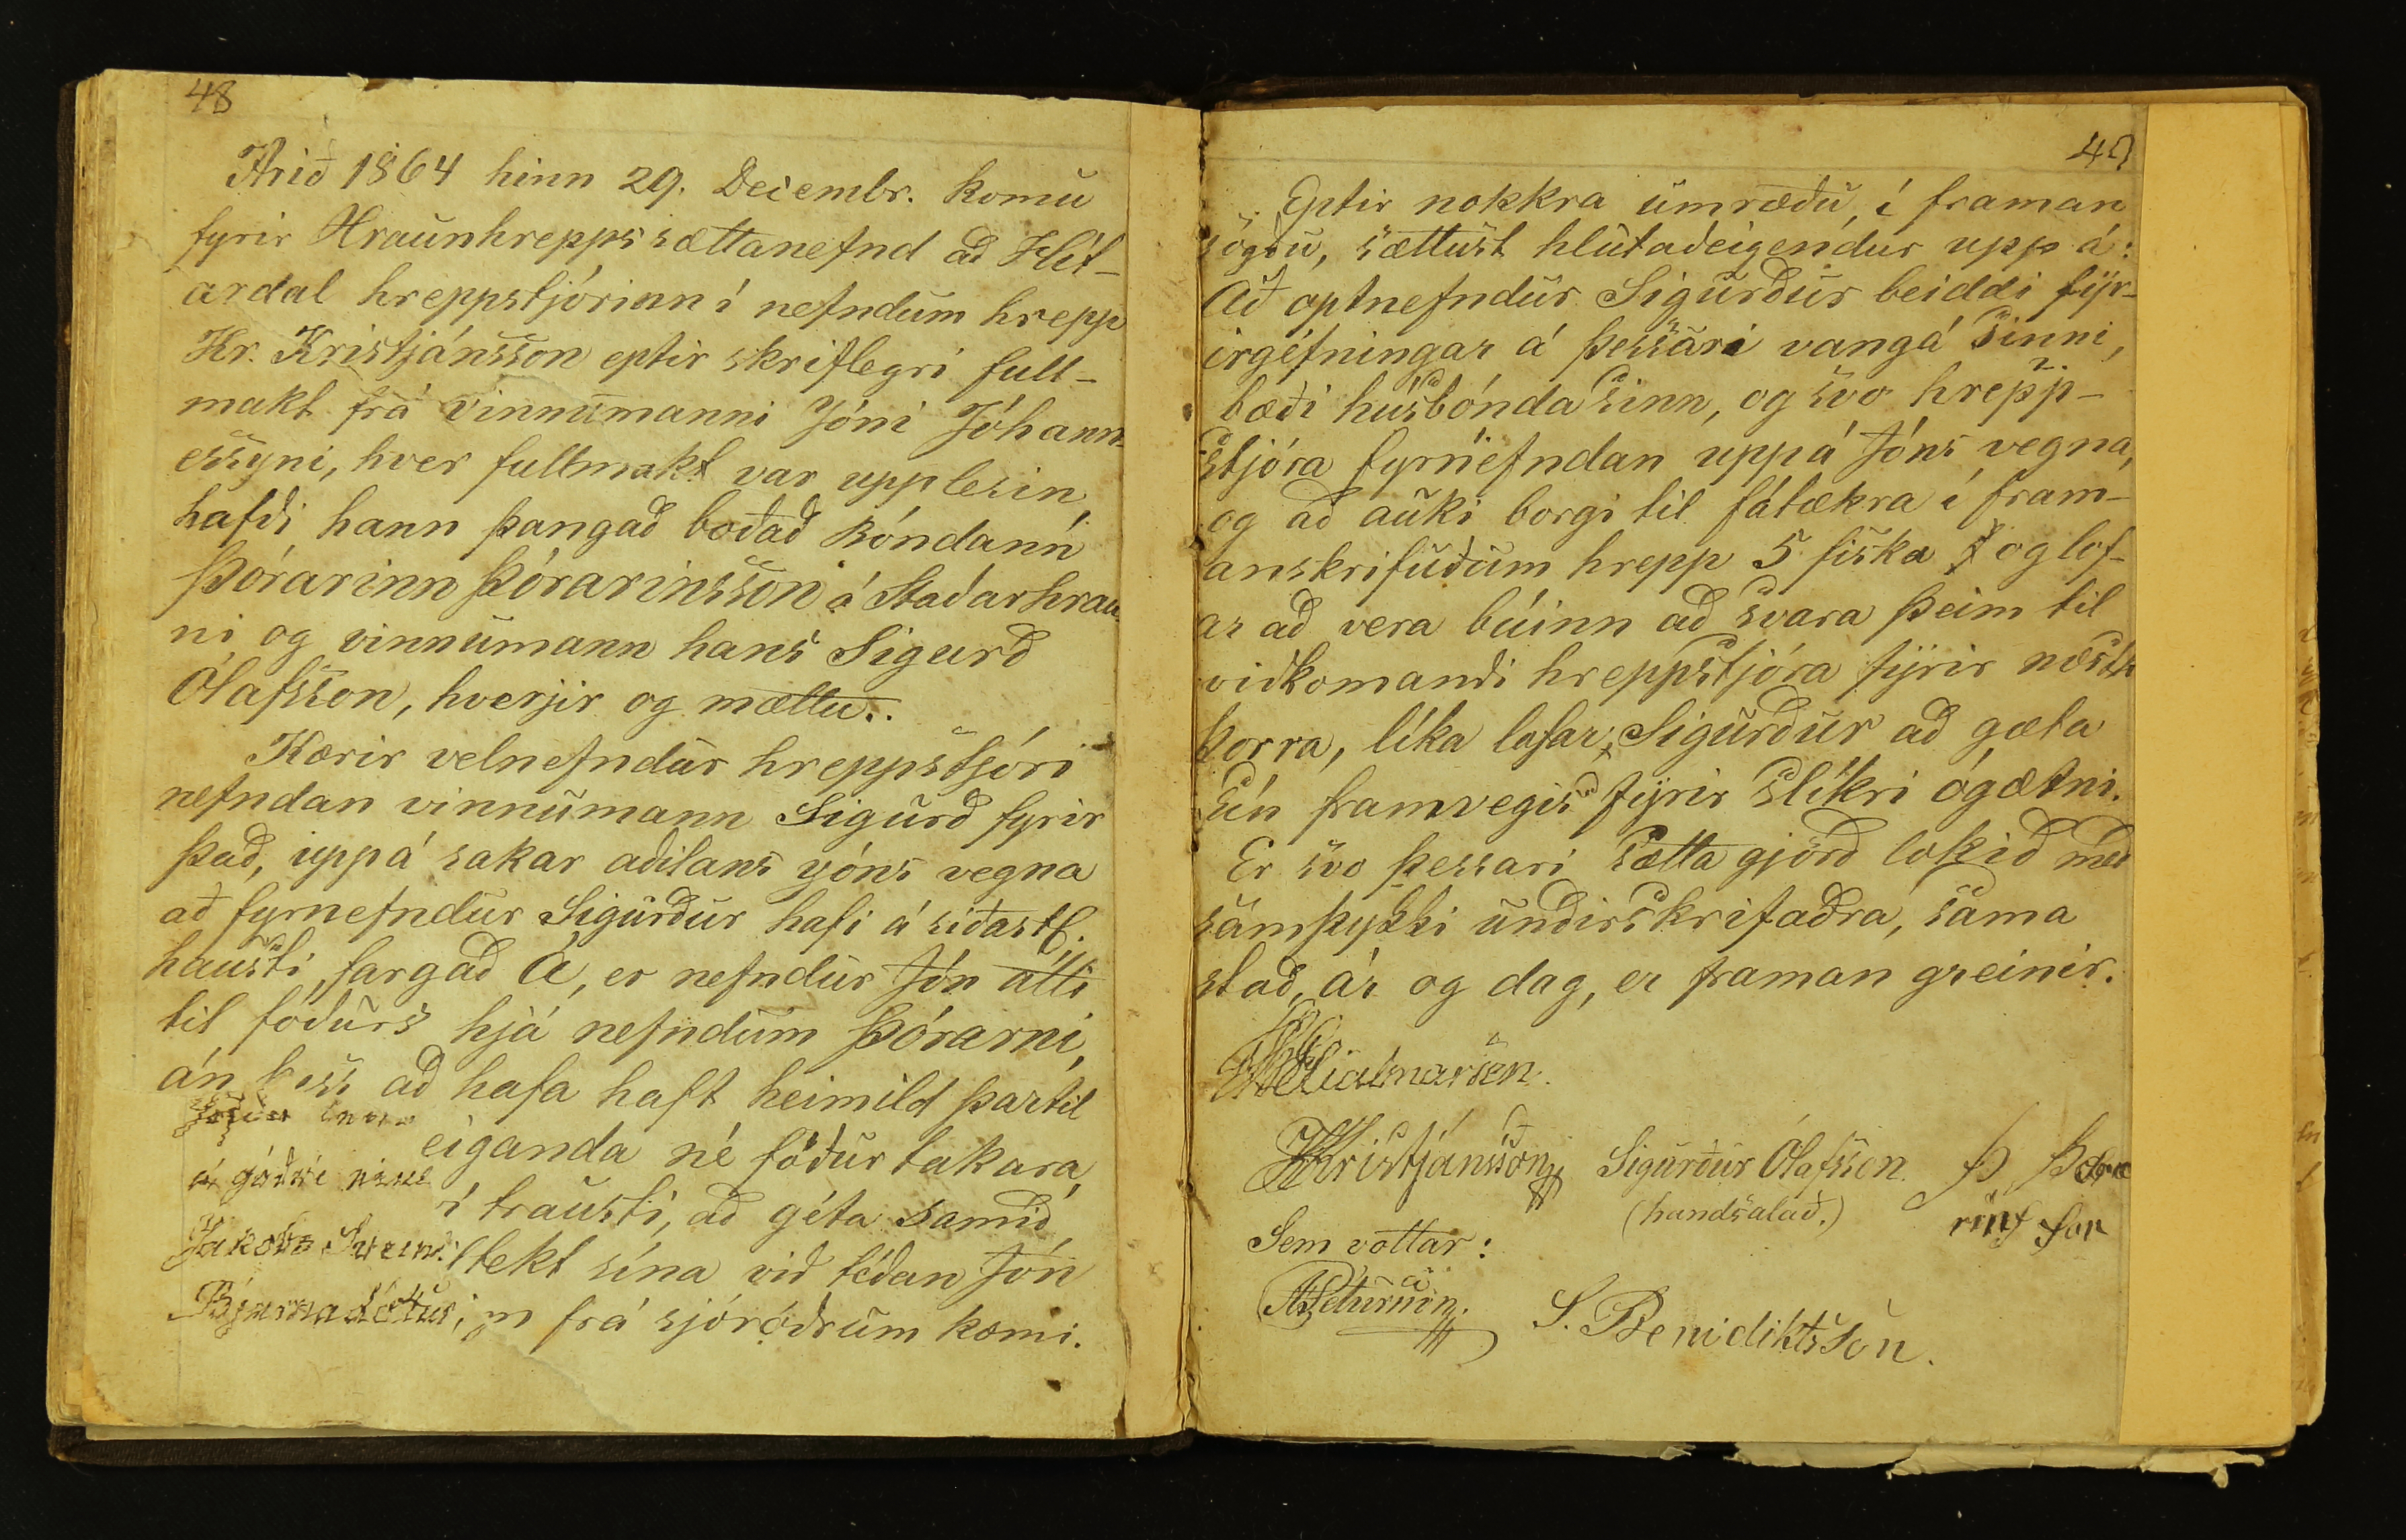 48
Árið 1864 hinn 29. Decembr. komu
fyrir Hraunhrepps sættanefnd að Hít-
ardal hreppstjórinn í nefndum hrepp
Kr. Kristjánsson eptir skriflegri full-
makt frá vinnumanni Jóni Jóhann-
essyni, hver fullmakt var upplesin,
hafði hann þangað boðað bóndann
Þórarinn Þórarinsson á Staðarhrau-
ni og vinnumann hans Sigurð
Ólafsson, hverjir og mættu.
Kærir velnefndur hreppstjóri
nefndan vinnumann Sigurð fyrir
það, uppá sakar aðilans Jóns vegna
að fyrnefndur Sigurður hafi á síðastl.
hausti, fargað Á, er nefndur Jón átti
til fóðurs hjá nefndum Þórarni,
án þess að hafa haft heimild þartil
eiganda né fóðurtakara,
í trausti, að géta samið
tekt sína við téðan Jón
frá sjóróðrum kæmi.
á góðri
Jakobs
Bjarnadóttur
49
Eptir nokkra umræðu, í framan
sögðu, sættust hlutaðeigendur upp á:
Að optnefndur Sigurður beiddi fyr-
irgéfningar á þessari vangá sinni,
bæði húsbónda sinn, og svo hrepp-
stjóra fyrnefndan uppá Jóns vegna,
og að auki borgi til fátækra í fram-
anskrifuðum hrepp 5 fiska og lof-
ar að vera búinn að svara þeim til
viðkomandi hreppstjóra fyrir næstk
þorra, líka lofar Sigurður að gæta
sín framvegis fyrir slíkri ógætni.
Er svo þessari sætta gjörð lokið með
samþykki undirskrifaðra, sama
stað, ár og dag, er framan greinir.
Hjálmarsen.
KKristjánsson Sigurður Ólafsson Þ Þóra
(handsalað.) rinsson
Sem vottar:
Péturson. S. Benidiktsson.